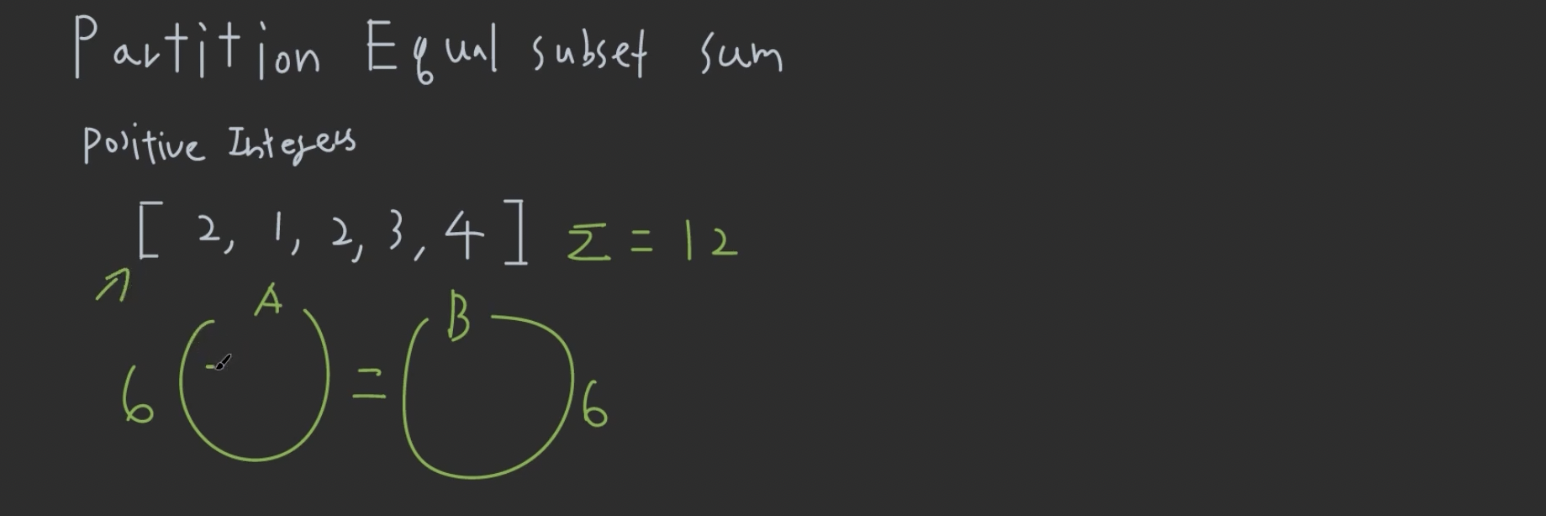 Partition Equal subset sum
Positive Integers
[ 2, 1, 2, 3, 4 ] Σ = 12
A B
6 = 6